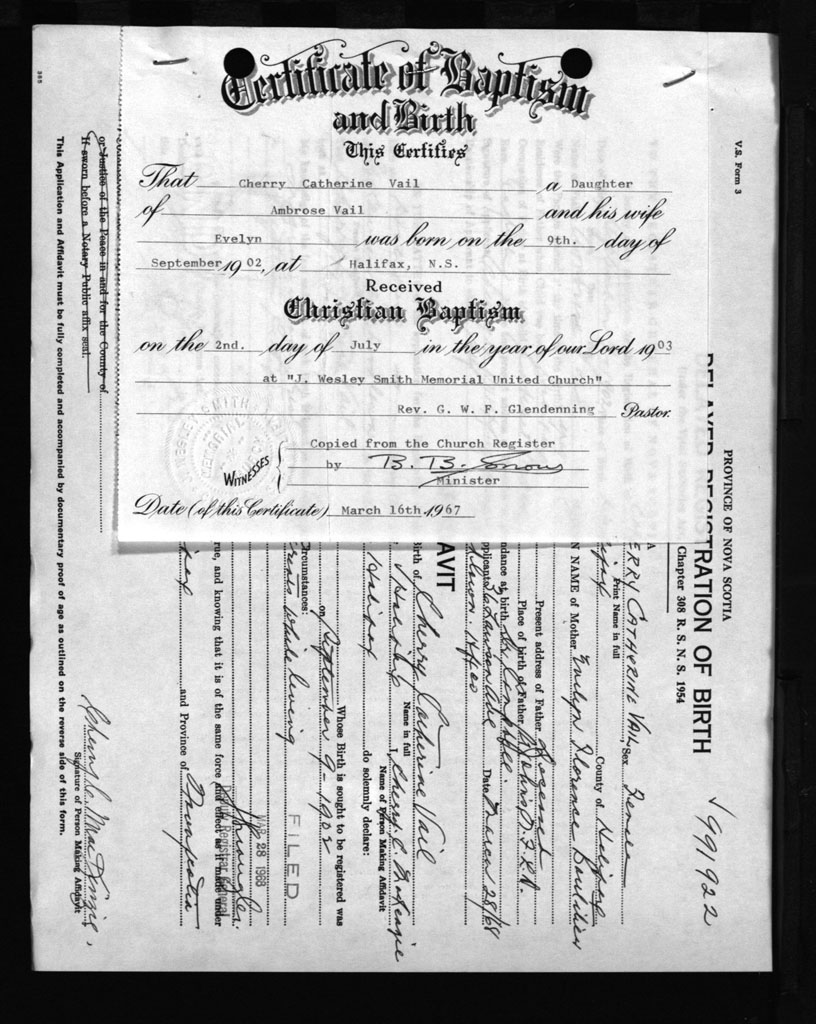 Certificate of Baptism
and Birth
This Certifies
That Cherry Catherine Vail a Daughter
of Ambrose Vail and his wife
Evelyn was born on the 9th. day of
September 1902, at Halifax, N.S.
Received
Christian Baptism
on the 2nd. day of July in the year of our Lord 1903
at "J. Wesley Smith Memorial United Church"
Rev. G. W. F. Glendenning Pastor.
WITNESSES
Copied from the Church Register
by B. B.
Minister
Date (of this Certificate) March 16th. 1967
V.S. Form 3
PROVINCE OF NOVA SCOTIA
DELAYED REGISTRATION OF BIRTH
Chapter 308 R. S. N. S. 1954
991922
ERRY CATHERINE VAIL Sex Female
Print Name in full
County of Halifax
N NAME of Mother Evelyn Florence Boutilier
Present address of Father Deceased
Place of birth of Father St Johns N.F.L.D.
ndance at birth
pplicant Date March 28/68
AVIT
Birth of Cherry Catherine Vail
Name in full
Halifax I, Cherry C. MacKenzie
Name of Person Making Affidavit
Halifax do solemnly declare:
Whose Birth is sought to be registered was
on September 9 - 1902
Circumstances:
while living
FILED
28 1968
Deputy Registrar General
rue, and knowing that it is of the same force and effect as if made under
and Province of Nova Scotia
Signature of Person Making Affidavit
or Justice of the Peace in and for the County of
If sworn before a Notary Public affix seal.
This Application and Affidavit must be fully completed and accompanied by documentary proof of age as outlined on the reverse side of this form.